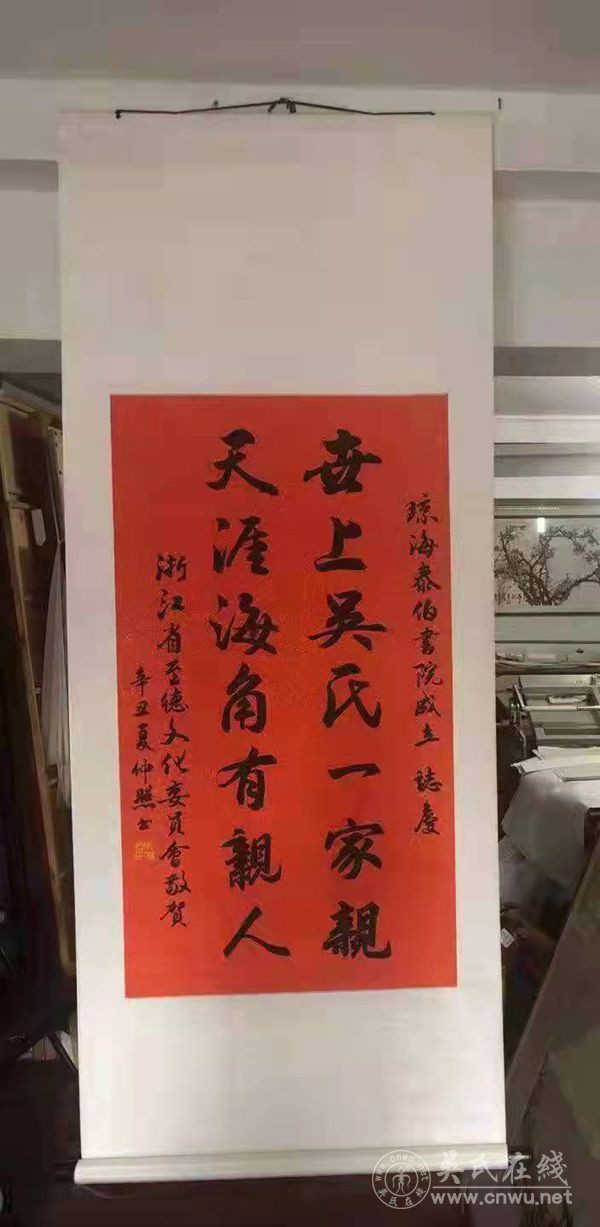 琼海泰伯書院成立 誌慶
世上吴氏一家親
天涯海角有親人
浙江省至德文化委員會敬賀
辛丑夏仲照书
吴氏在线
www.cnwu.net